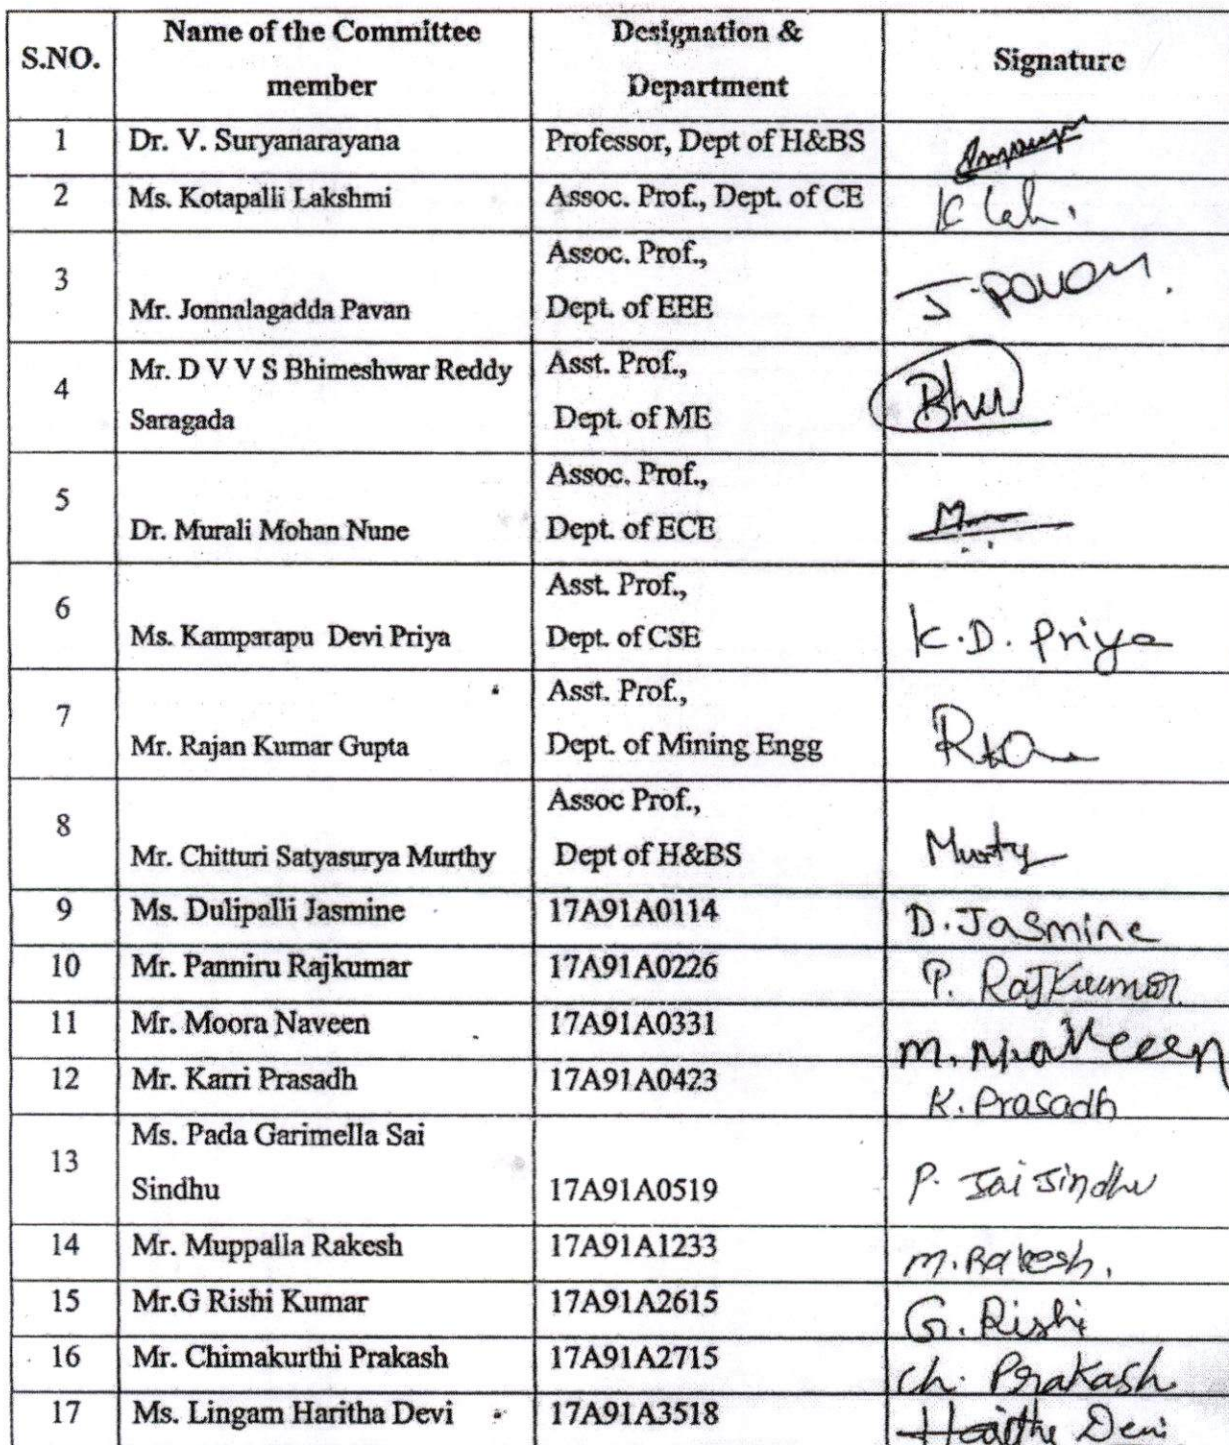 S.NO. Name of the Committee member Designation & Department Signature
1 Dr. V. Suryanarayana Professor, Dept of H&BS
2 Ms. Kotapalli Lakshmi Assoc. Prof., Dept. of CE
3 Mr. Jonnalagadda Pavan Assoc. Prof., Dept. of EEE J. Pavan.
4 Mr. D V V S Bhimeshwar Reddy Saragada Asst. Prof., Dept. of ME
5 Dr. Murali Mohan Nune Assoc. Prof., Dept. of ECE
6 Ms. Kamparapu Devi Priya Asst. Prof., Dept. of CSE K.D. Priya
7 Mr. Rajan Kumar Gupta Asst. Prof., Dept. of Mining Engg
8 Mr. Chitturi Satyasurya Murthy Assoc Prof., Dept of H&BS Murty
9 Ms. Dulipalli Jasmine 17A91A0114 D. Jasmine
10 Mr. Panniru Rajkumar 17A91A0226 P. RajKumar
11 Mr. Moora Naveen 17A91A0331 M. Naveen
12 Mr. Karri Prasadh 17A91A0423 K. Prasadh
13 Ms. Pada Garimella Sai Sindhu 17A91A0519 P. Sai Sindhu
14 Mr. Muppalla Rakesh 17A91A1233 M. Rakesh.
15 Mr.G Rishi Kumar 17A91A2615 G. Rishi
16 Mr. Chimakurthi Prakash 17A91A2715 Ch. Prakash
17 Ms. Lingam Haritha Devi 17A91A3518 Haritha Devi